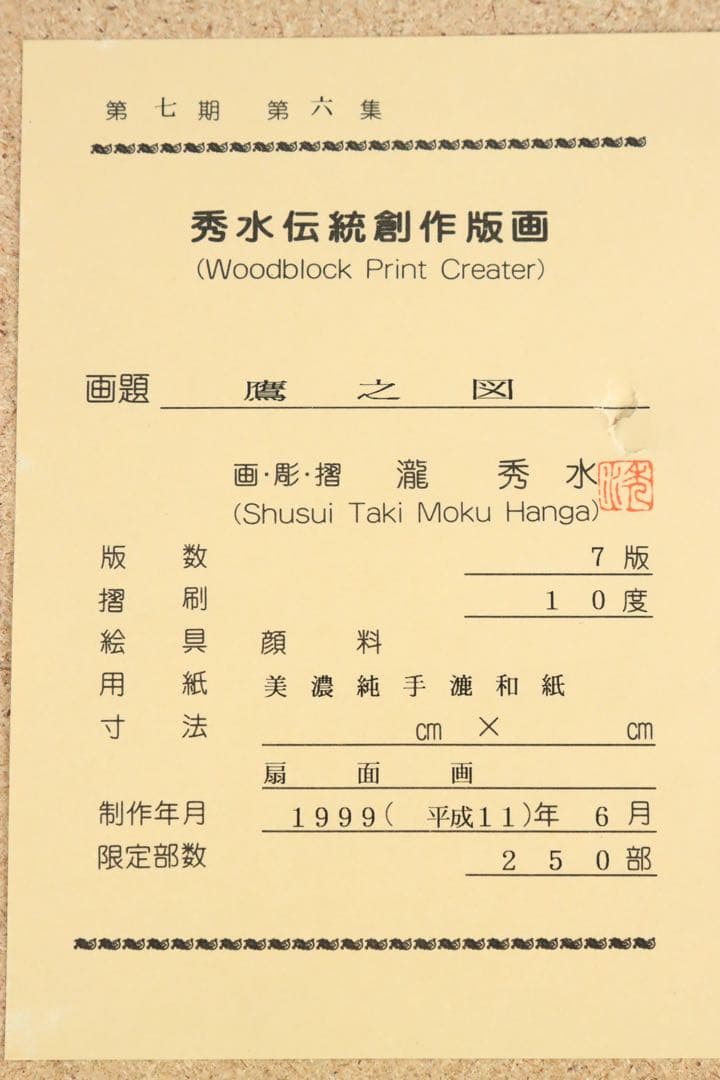 第七期 第六集
秀水伝統創作版画
(Woodblock Print Creater)
画題 鷹之図
画・彫・摺 瀧 秀水
(Shusui Taki Moku Hanga)
版数 7版
摺刷 10度
絵具 顔料
用紙 美濃純手漉和紙
寸法 cm × cm
扇面画
制作年月 1999(平成11)年 6月
限定部数 250部